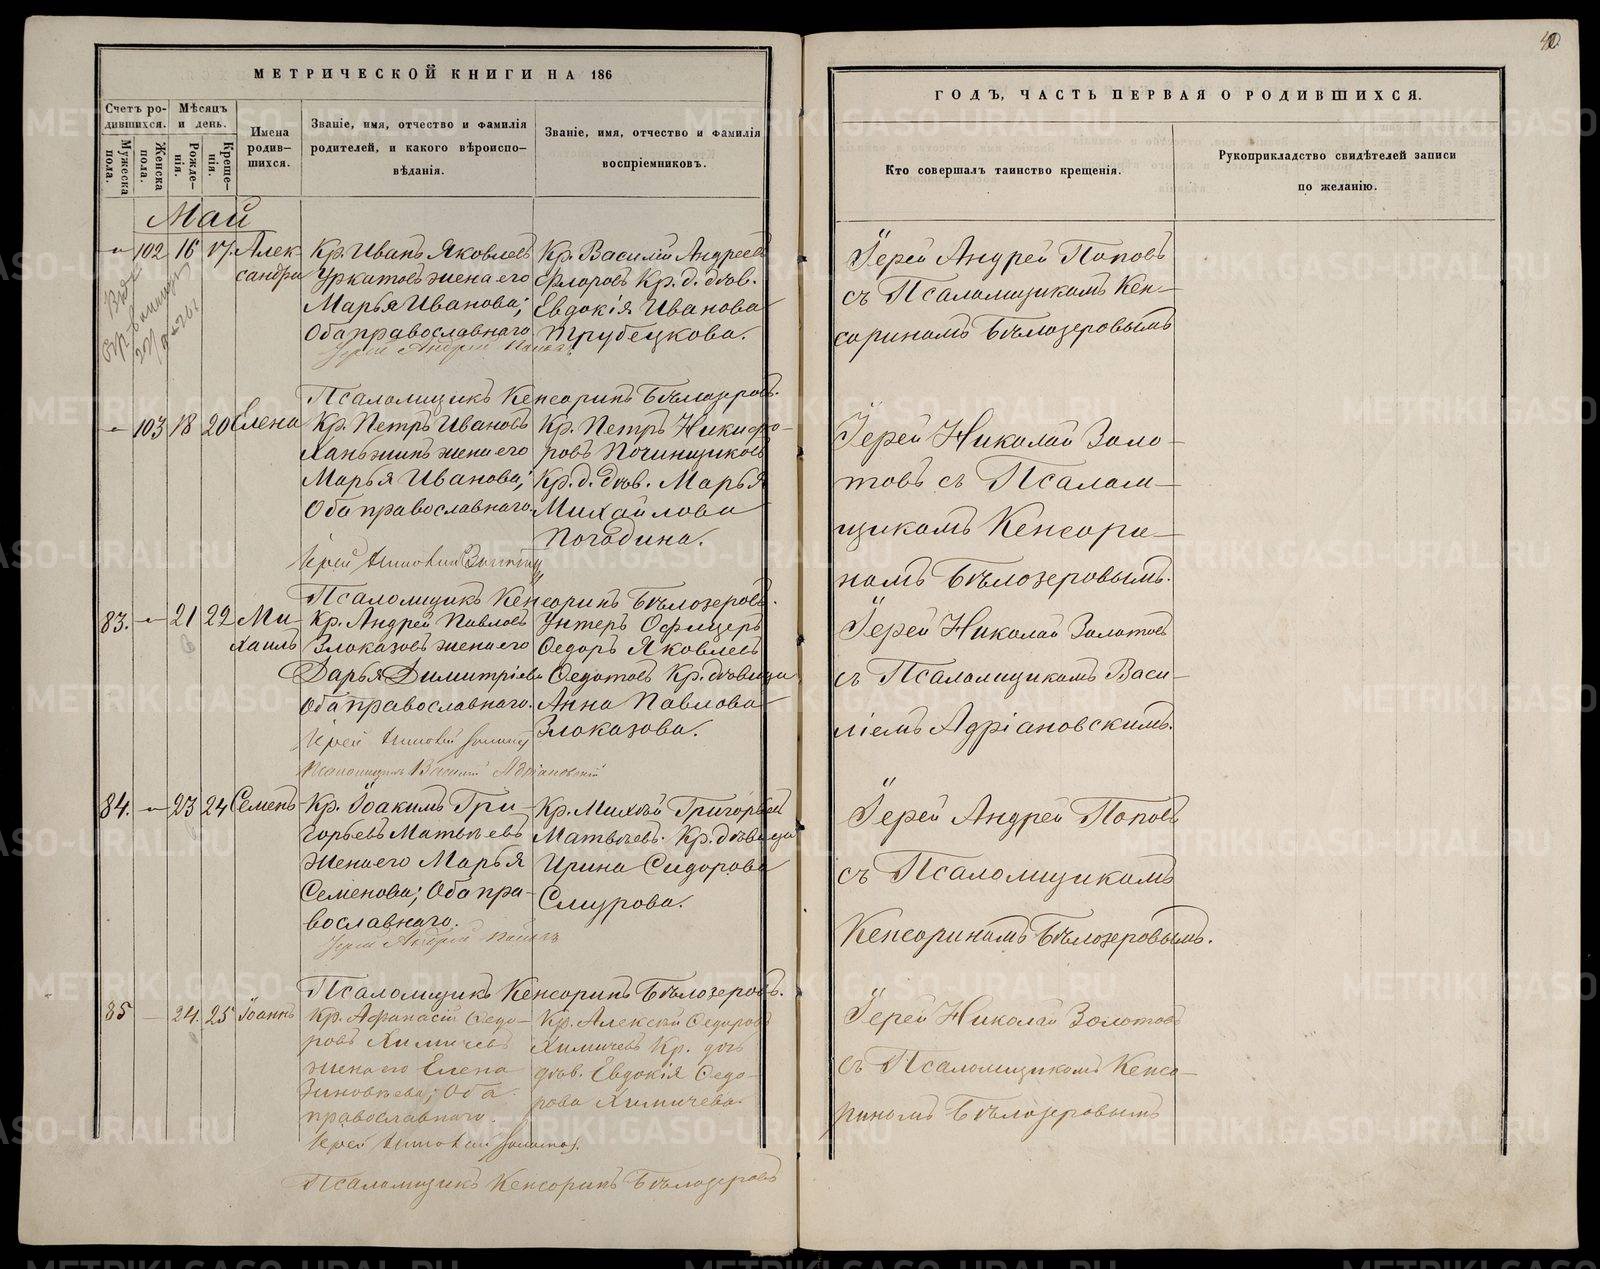 МЕТРИЧЕСКОЙ КНИГИ НА 186
Счетъ ро-
дившихся.
Мужеска
пола.
Женска
пола.
Мѣсяцъ
и день.
Рожде-
нія.
Креще-
нія.
Имена
родив-
шихся.
Званіе, имя, отчество и фамилія
родителей, и какого вѣроиспо-
вѣданія.
Званіе, имя, отчество и фамилія
воспріемниковъ.
Май
102 16 17 Алек-
сандра
Кр. Иванъ Яковлевъ
Уркатовъ жена его
Марья Иванова;
Оба православнаго
Іерей Андрей Поповъ
Кр. Василій Андреевъ
Фларовъ Кр. д. дѣв.
Евдокія Иванова
Трубецкова.
Псаломщикъ Кенсоринъ Бѣлозеровъ.
103 18 20 Елена
Кр. Петръ Ивановъ
Ханьжинъ жена его
Марья Иванова;
Оба православнаго.
Кр. Петръ Никифо-
ровъ Починщиковъ
Кр. д. дѣв. Марья
Михайлова
Погадина.
Псаломщикъ Кенсоринъ Бѣлозеровъ.
83. 21 22 Ми-
хаилъ
Кр. Андрей Павловъ
Злоказовъ жена его
Дарья Димитріева
Оба православнаго.
Унтеръ Офицеръ
Ѳедоръ Яковлевъ
Ѳедотовъ Кр. дѣвица
Анна Павлова
Злоказова.
Псаломщикъ Василій Адріановскій
84. 23 24 Семенъ
Кр. Іоакимъ Гри-
горьевъ Матвѣевъ
жена его Марья
Семенова; Оба пра-
вославнаго.
Іерей Андрей Поповъ
Кр. Михѣй Григорьевъ
Матвѣевъ. Кр. дѣвица
Ирина Сидорова
Смурова.
Псаломщикъ Кенсоринъ Бѣлозеровъ.
85 24. 25 Іоаннъ
Кр. Афанасій Ѳедо-
ровъ Химичевъ
жена его Елена
Зиновьева; Оба
православнаго.
Кр. Алексѣй Ѳедоровъ
Химичевъ Кр. дочь
дѣв. Евдокія Ѳедо-
рова Химичева.
Псаломщикъ Кенсоринъ Бѣлозеровъ
ГОДЪ, ЧАСТЬ ПЕРВАЯ О РОДИВШИХСЯ.
Кто совершалъ таинство крещенія.
Рукоприкладство свидѣтелей записи
по желанію.
Іерей Андрей Поповъ
съ Псаломщикомъ Кен-
сориномъ Бѣлозеровымъ
Іерей Николай Золо-
товъ съ Псалом-
щикомъ Кенсори-
номъ Бѣлозеровымъ.
Іерей Николай Золотовъ
съ Псаломщикомъ Васи-
ліемъ Адріановскимъ.
Іерей Андрей Поповъ
съ Псаломщикомъ
Кенсориномъ Бѣлозеровымъ.
Іерей Николай Золотовъ
съ Псаломщикомъ Кенсо-
риномъ Бѣлозеровымъ
METRIKI.GASO-URAL.RU